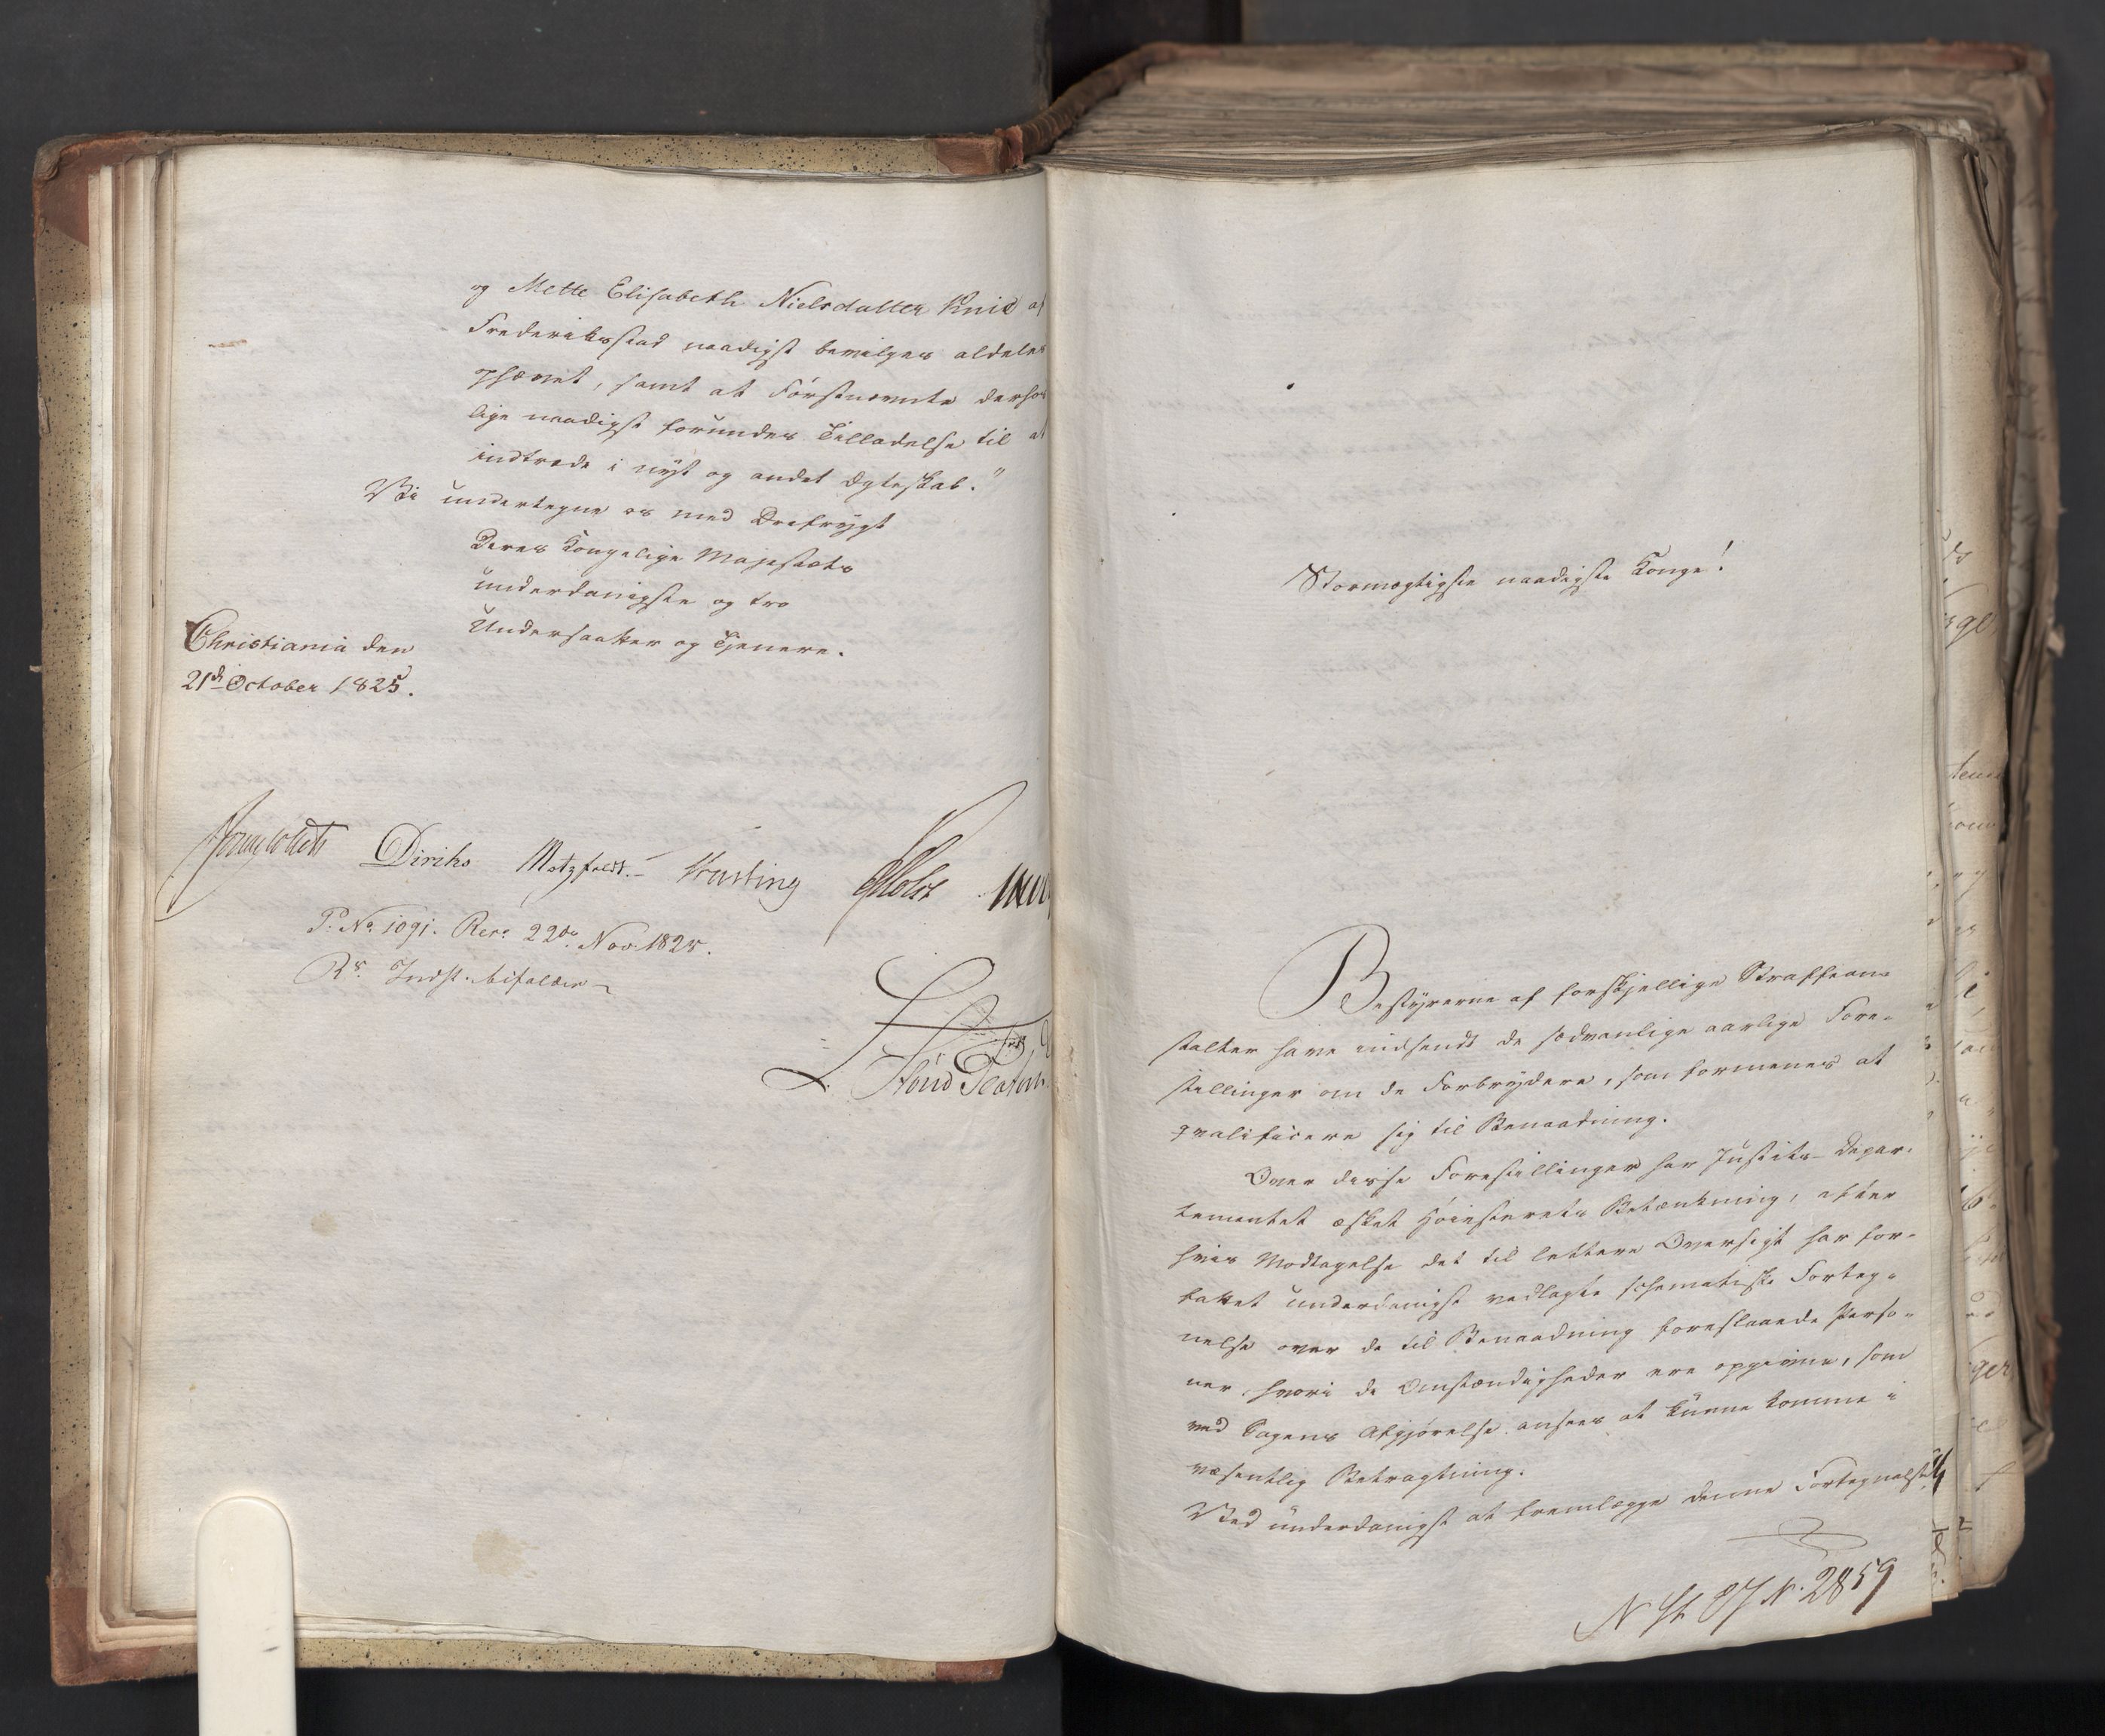 og Mette Elisabeth Nielsdatter Knie af
Frederiksstad naadigst bevilges aldeles
ophævet, samt at Førstnævnte derhos
lige naadigst forundes Tilladelse til at
indtræde i nyt og andet Ægteskab."
Vi undertegne os med Ærefrygt
Deres Kongelige Majestæts
underdanigste og tro
Undersaatter og Tjenere.
Christiania den
21de October 1825.
Diriks Motzfeldt. Krusting Holst
P. No 1091. Res. 22de Nov. 1825.
Rs. Indst. bifaldes
Stormægtigste naadigste Konge!
Bestyrerne af forskjellige Straffean-
stalter have indsendt de sædvanlige aarlige Fore-
stillinger om de Forbrydere, som formenes at
qvalificere sig til Benaadning.
Over disse Forestillinger har Justits-Depar-
tementet æsket Høiesterets Betænkning, efter
hvis Modtagelse det til lettere Oversigt har for-
fattet underdanigst vedlagte schematiske Forteg-
nelse over de til Benaadning foreslaaede Perso-
ner, hvori de Omstændigheder ere opgivne, som
ved Sagens Afgjørelse ansees at kunne komme i
væsentlig Betragtning.
Ved underdanigst at fremlægge denne Fortegnelse
2859